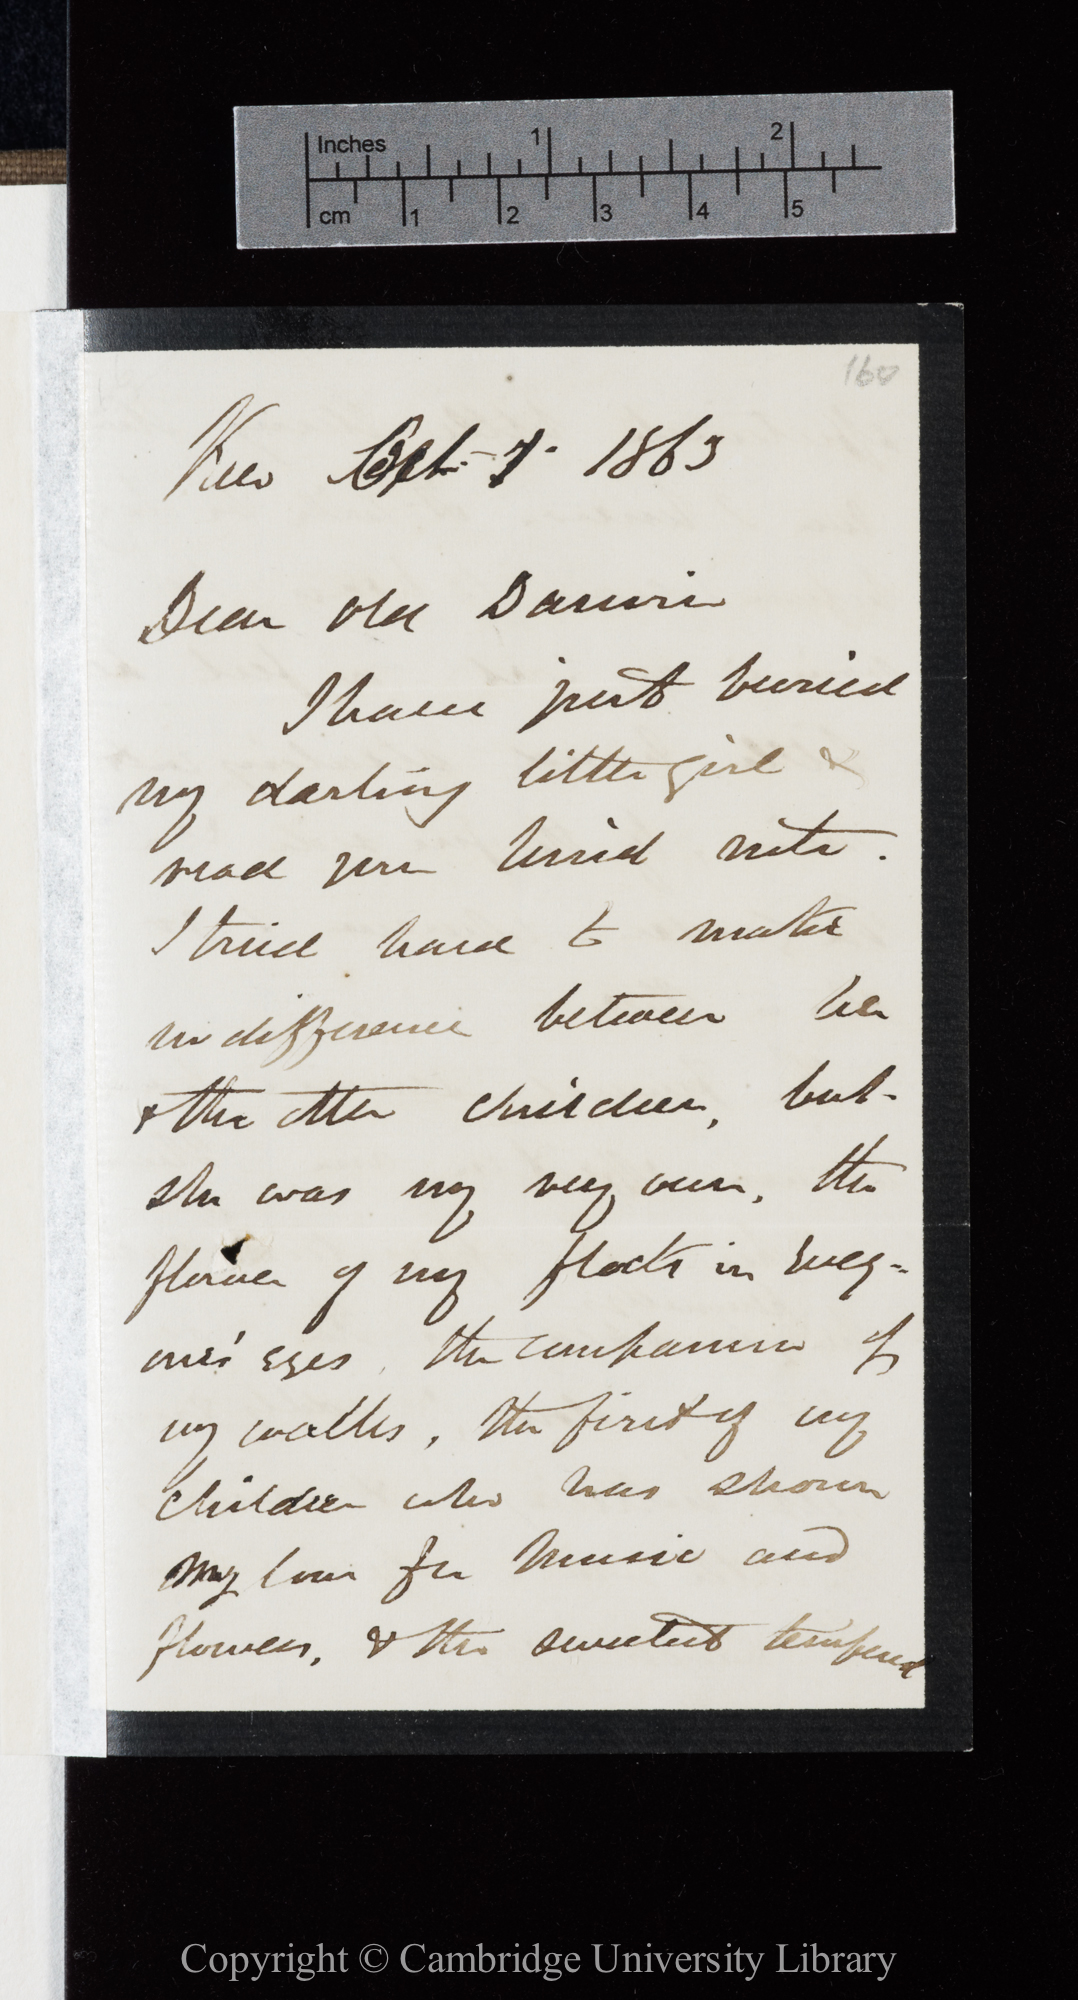 Inches 1 2
cm 1 2 3 4 5
160
Kew Oct. 1. 1863
Dear Old Darwin
I have just buried
my darling little girl &
read your kind note.
I tried hard to make
no difference between her
& the other children, but
she was my very own, the
flower of my flock in every-
one's eyes, the companion of
my walks, the first of my
children who has shown
my love for music and
flowers, & the sweetest tempered
Copyright © Cambridge University Library